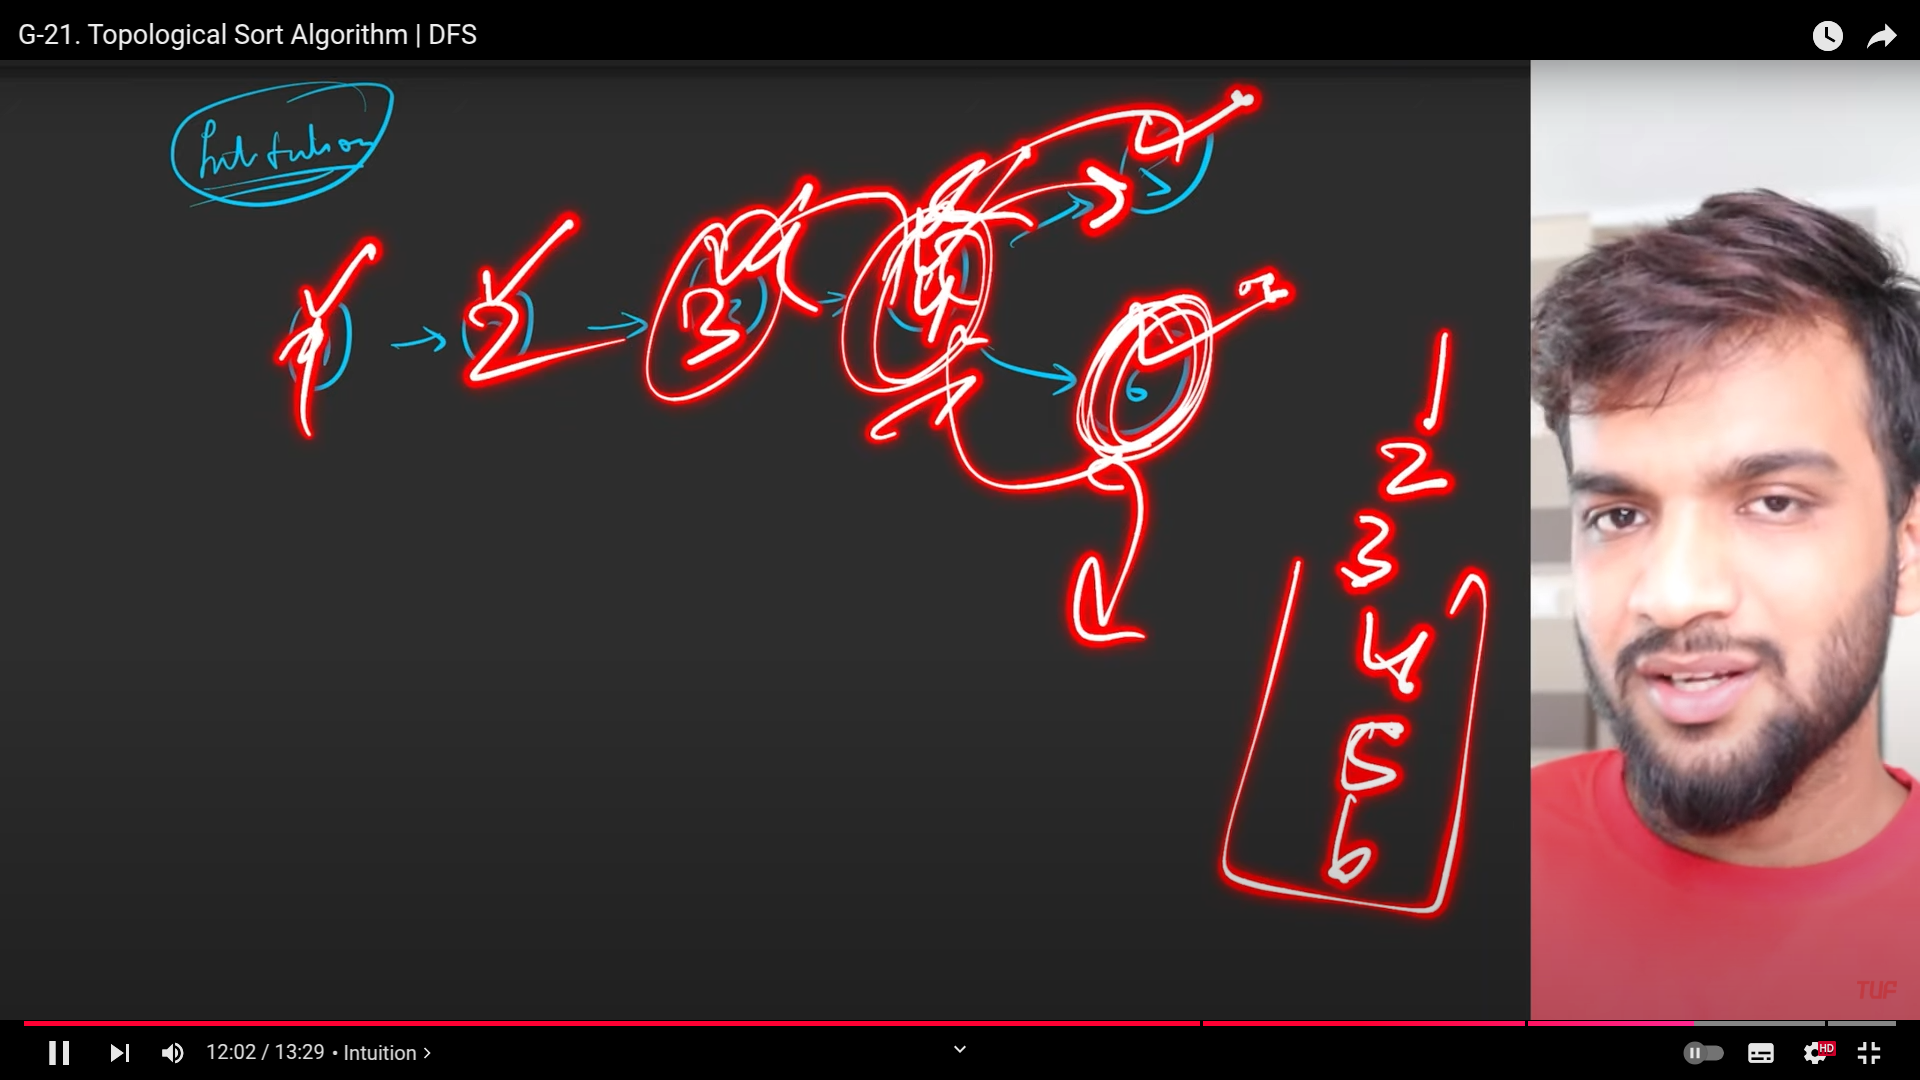 G-21. Topological Sort Algorithm | DFS
Intuition
1 2 3 4 5
6
1
2
3
4
5
6
TUF
12:02 / 13:29 • Intuition >
HD